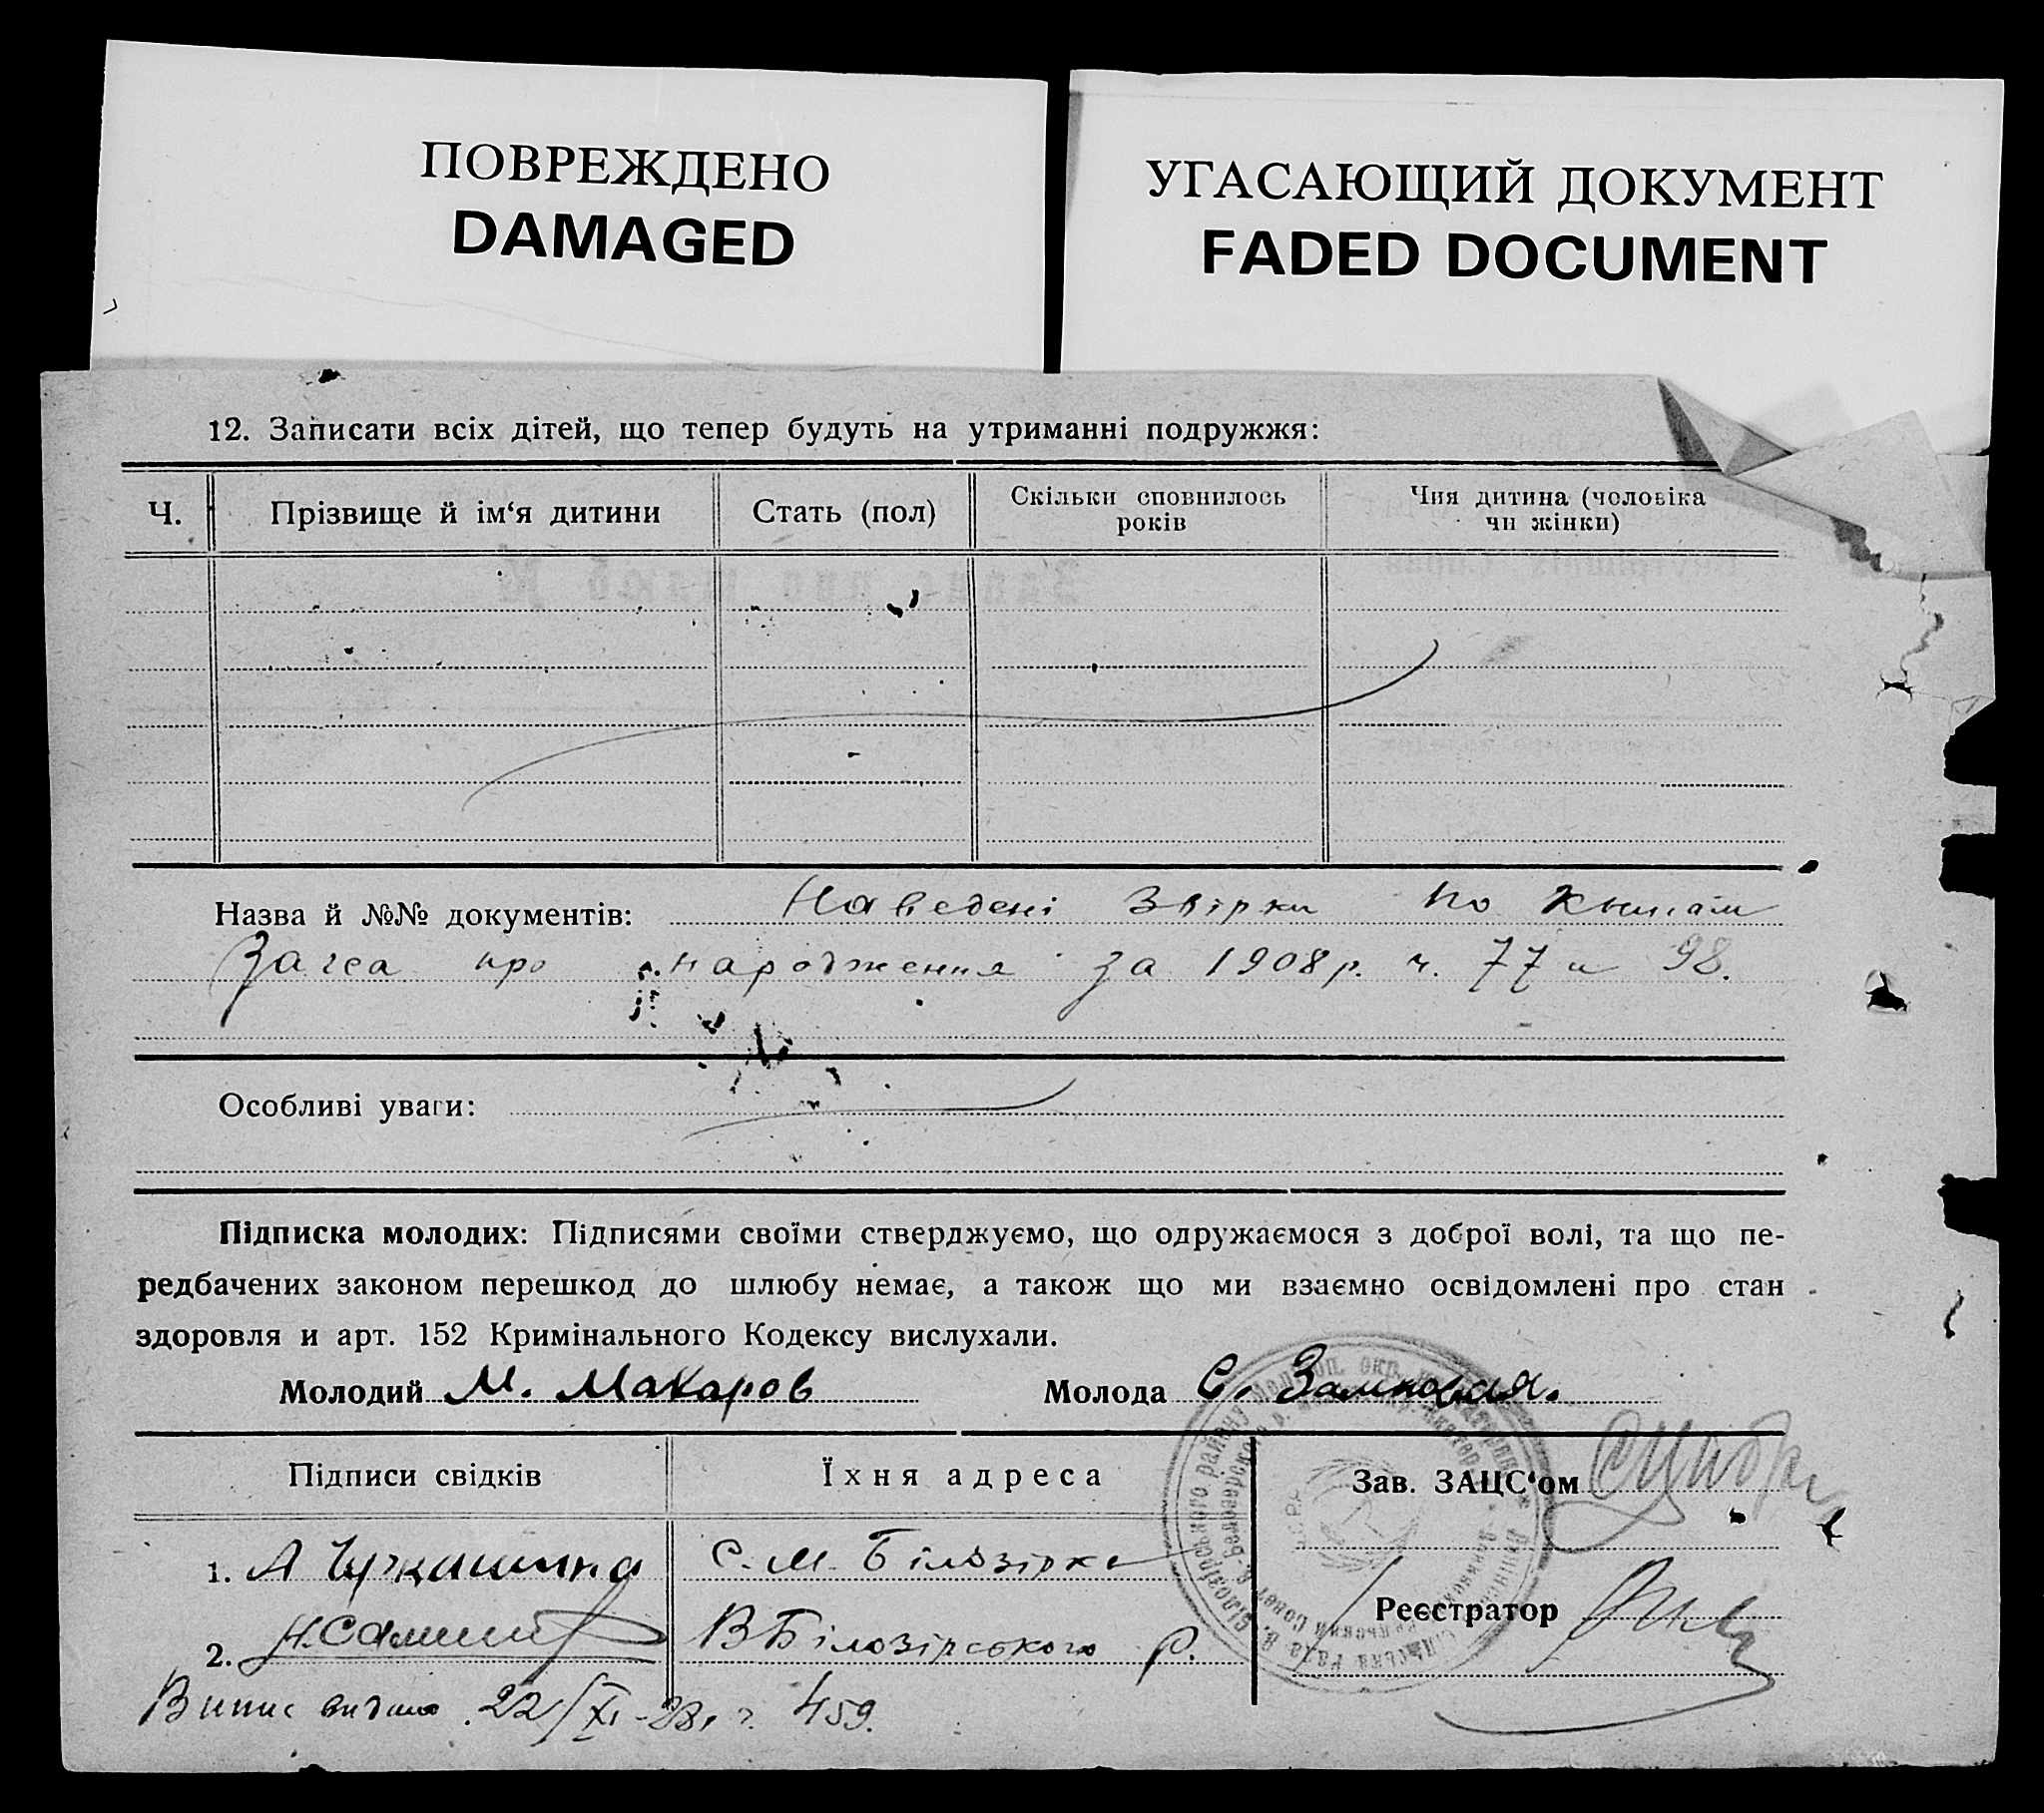 ПОВРЕЖДЕНО
DAMAGED
УГАСАЮЩИЙ ДОКУМЕНТ
FADED DOCUMENT
12. Записати всіх дітей, що тепер будуть на утриманні подружжя:
Ч. Прізвище й ім‘я дитини Стать (пол) Скільки сповнилось років Чия дитина (чоловіка чи жінки)
Назва й №№ документів: Наведені Звірки по книгам
Загса про народження за 1908 р. ч. 77 и 98.
Особливі уваги:
Підписка молодих: Підписями своїми стверджуємо, що одружаємося з доброї волі, та що пе-
редбачених законом перешкод до шлюбу немає, а також що ми взаємно освідомлені про стан
здоровля и арт. 152 Кримінального Кодексу вислухали.
Молодий М. Макаров Молода С.
Підписи свідків Їхня адреса Зав. ЗАЦС‘ом
1. А С. М. Білозірке
Реєстратор
2. Н. В Білозірського р.
Випис видано 22/XI-28. г. 459.